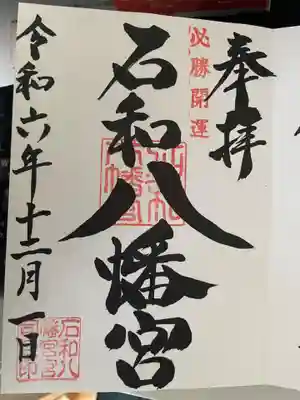 奉拝
必勝開運
石和八幡宮
令和六年十二月一日
石和八幡宮
石和八幡宮之印